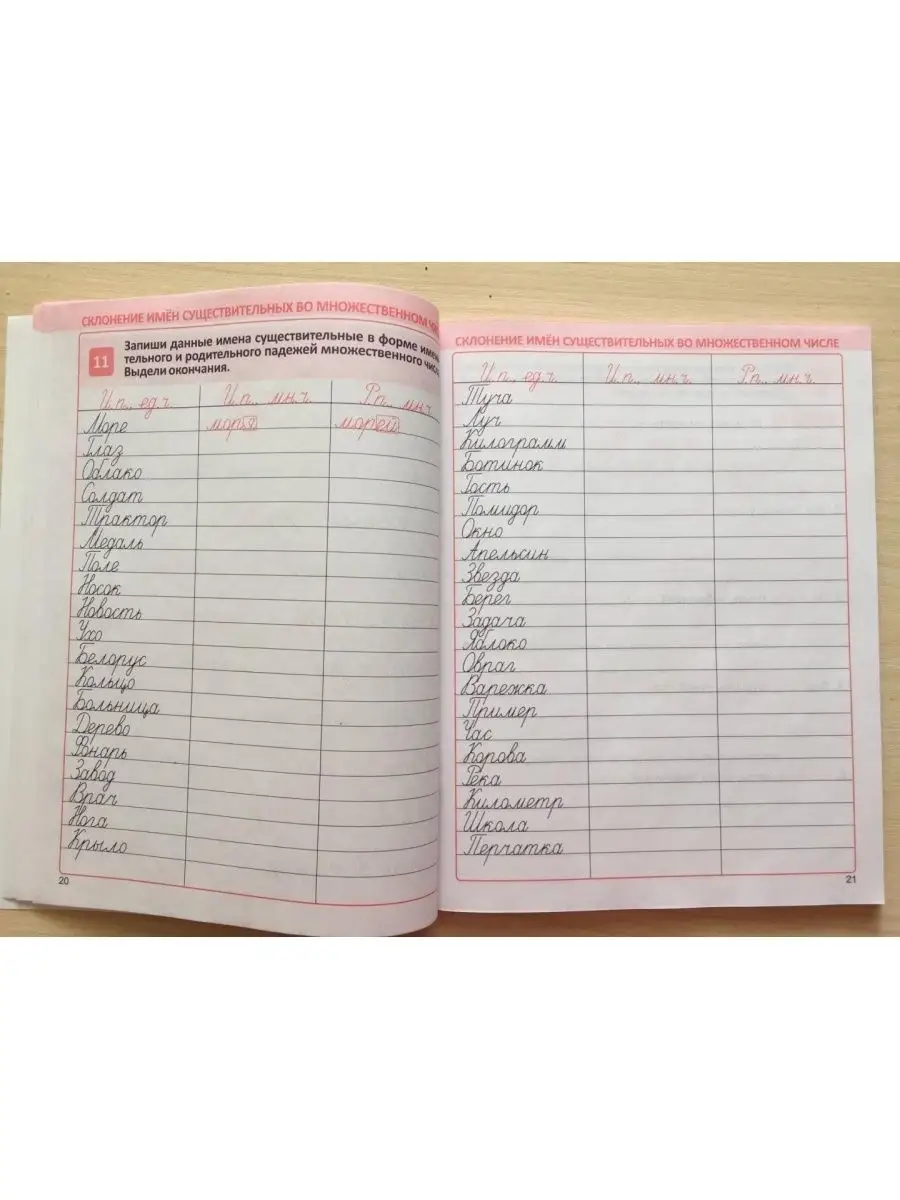 СКЛОНЕНИЕ ИМЁН СУЩЕСТВИТЕЛЬНЫХ ВО МНОЖЕСТВЕННОМ
11
Запиши данные имена существительные в форме имени
тельного и родительного падежей множественного числа.
Выдели окончания.
И.п., ед.ч. И.п., мн.ч. Р.п., мн.ч
Море моря морей
Глаз
Облако
Солдат
Трактор
Медаль
Поле
Носок
Новость
Ухо
Белорус
Кольцо
Больница
Дерево
Фонарь
Завод
Врач
Нога
Крыло
20
СКЛОНЕНИЕ ИМЁН СУЩЕСТВИТЕЛЬНЫХ ВО МНОЖЕСТВЕННОМ ЧИСЛЕ
И.п., ед.ч. И.п., мн.ч. Р.п., мн.ч.
Туча
Луч
Килограмм
Ботинок
Гость
Помидор
Окно
Апельсин
Звезда
Берег
Задача
Яблоко
Овраг
Варежка
Пример
Час
Корова
Река
Километр
Школа
Перчатка
21